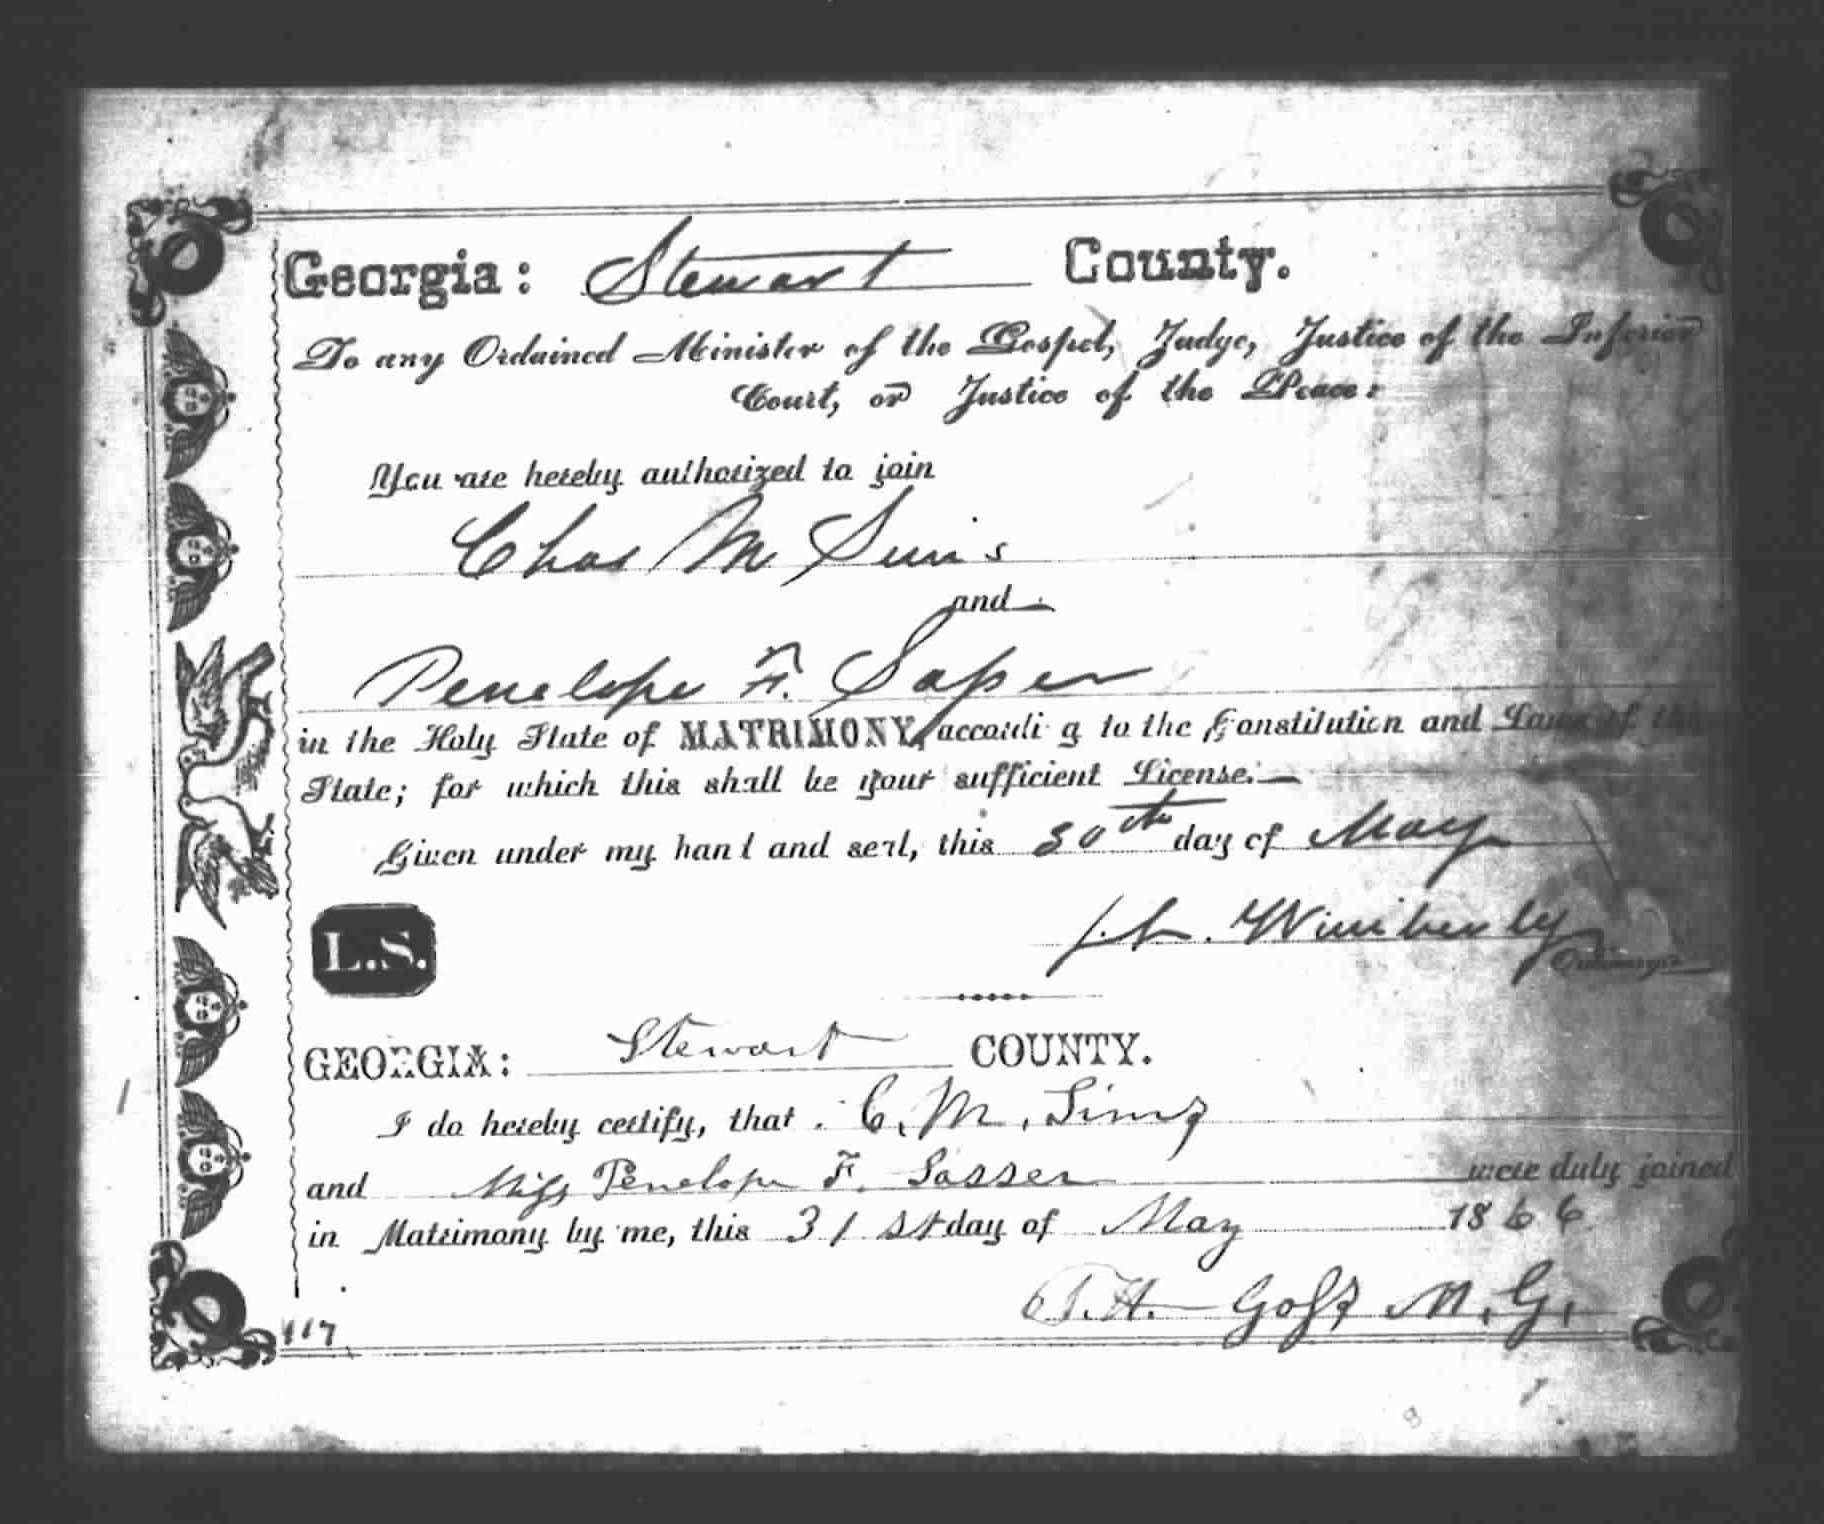 Georgia: Stewart County.
To any Ordained Minister of the Gospel, Judge, Justice of the Inferior
Court, or Justice of the Peace:
You are hereby authorized to join
Chas M Sims
and
Penelope F. Sasser
in the Holy State of MATRIMONY, accordi g to the Constitution and Laws of the
State; for which this shall be your sufficient License.
Given under my hand and seal, this 30th day of May
J. L. Wimberly
Ordinary
L.S.
GEORGIA: Stewart COUNTY.
I do hereby certify, that C. M. Sims
and Miss Penelope F. Sasser were duly joined
in Matrimony by me, this 31st day of May 1866
T. H. Goff M. G.
117